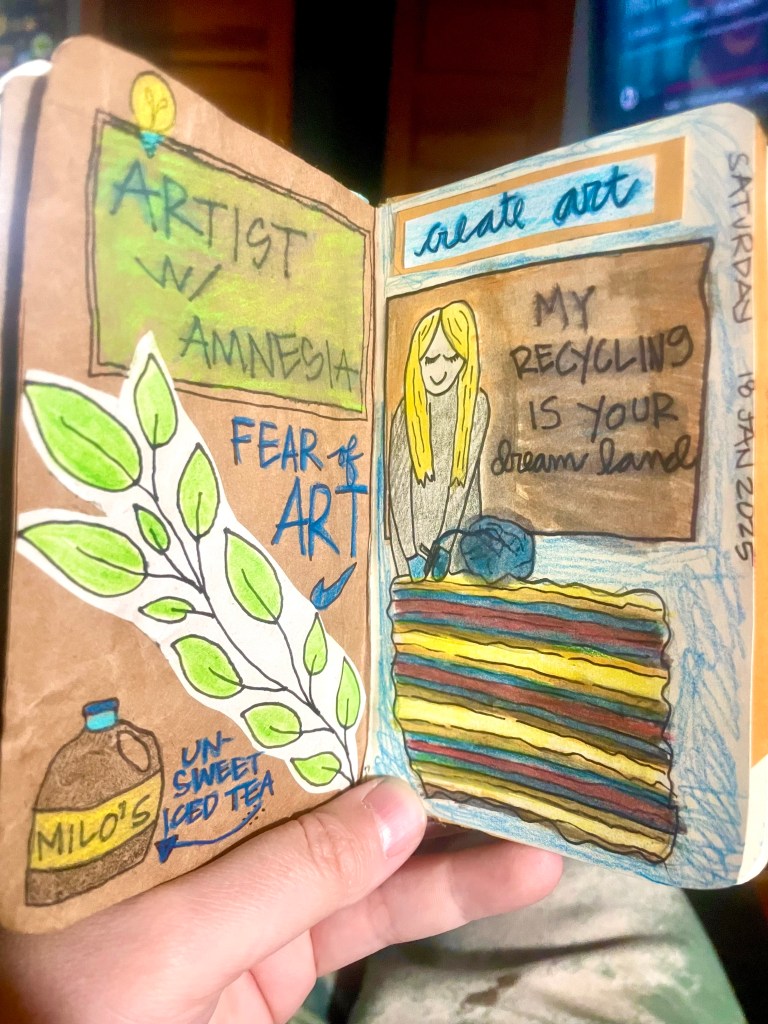 ARTIST
W/
AMNESIA
FEAR of
ART
UN-
SWEET
ICED TEA
MILO'S
create art
MY
RECYCLING
IS YOUR
dream land
SATURDAY 18 JAN 2025